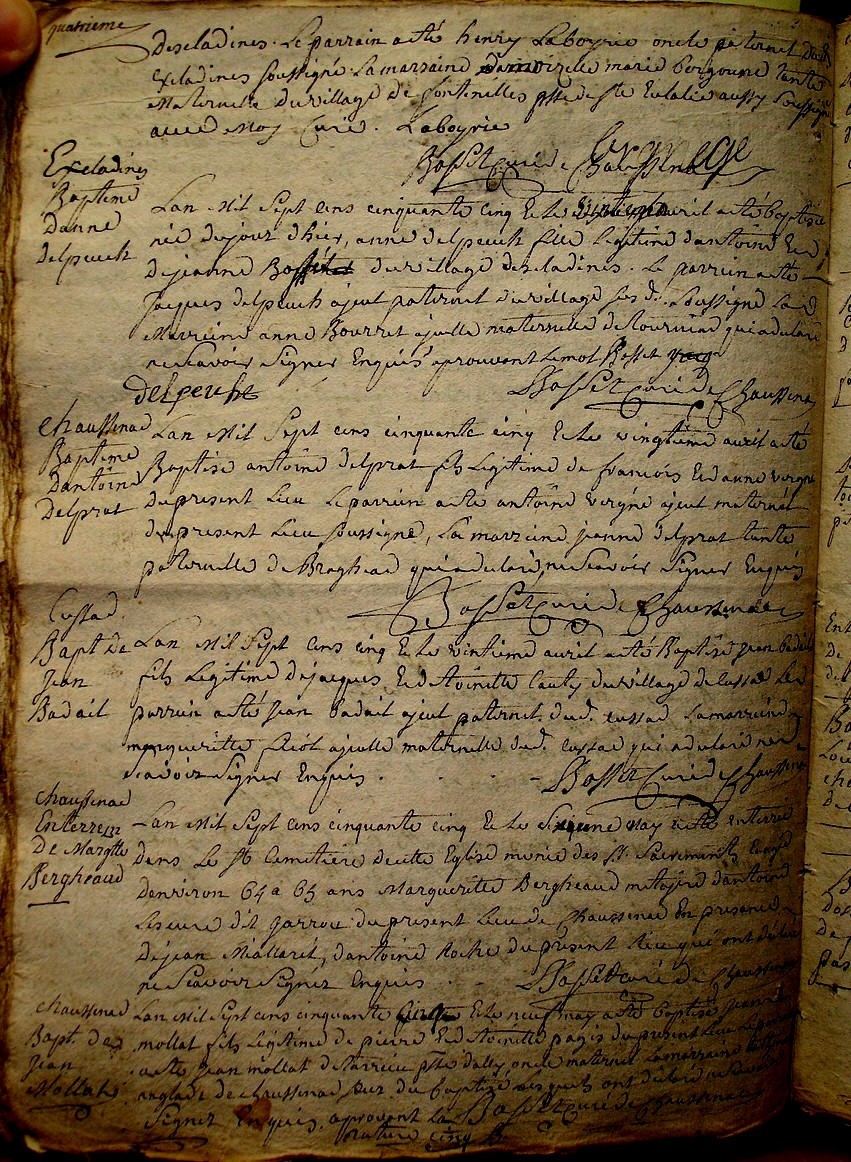 quatrieme
descladines. Le parrain a été henry Laboyrie oncle paternel dud.
Excladines soussigné La marraine marie tante
Maternelle du village de fontenelles psse de ste Eulalie aussy soussigné
avec Moy Curé. Laboyrie
Bosset curé de Chaussenac
Excladines
Baptême
danne
delpeuch
Lan Mil Sept cens cinquante cinq Et le avril a été baptisée
née du jour d'hier, anne delpeuch fille Legitime d'antoine Et
de jeanne du village descladines. Le parrain a été
jacques delpeuch ajeul paternel du village susd. soussigné La
Marreine anne Bourret ajeulle maternelle de tourniac qui a declaré
ne Scavoir Signer Enquis aprouvant Le mot Bosset
delpeuch
Bosset curé de Chaussenac
Chaussenac
Baptême
dantoine
Delprat
Lan Mil Sept cens cinquante cinq Et le vingtième avril a été
Baptisé antoine delprat fils Legitime de francois Et d anne vergne
du present Lieu Le parrien a été antoine vergne ajeul maternel
du present Lieu soussigné, La marreine jeanne delprat tante
paternelle de Bragheac qui a declaré ne Scavoir Signer Enquis
Bosset curé de Chaussenac
Cussac
Bapt. de
Jean
Badait
Lan Mil Sept cens cinq Et le vintième avril a été Baptisé jean badait
fils Legitime de jacques Et d toinette du village de cussac Le
parrien a été jean badait ajeul paternel dud. cussac La marreine
margueritte ajeulle maternelle dud. cussac qui a declaré ne
Scavoir Signer Enquis.
Bosset Curé de Chaussenac
Chaussenac
Enterrem
De Margtte
Bergheaud
Lan Mil Sept cens cinquante cinq Et le may a été enterrée
dans Le st Cemetière de cette Eglise munie des st. Sacrements
denviron 64 a 65 ans Marguerite Bergheaud d'antoine
Lescure dit garrou du present Lieu de Chaussenac En presence
de jean Mallaret, d antoine Roche du present Lieu qui ont declaré
ne Scavoir Signer Enquis
Bosset curé de Chaussenac
Chaussenac
Bapt. de
Jean
Mollat
Lan Mil Sept cens cinquante Et le neuf may a été baptisé jean
mollat fils Légitime de pierre Et d toinette pagis du present Lieu Le parrien
a été jean mollat psse dally oncle La marraine
anglade de chaussenac du baptisé lesquels ont declaré ne Scavoir
Signer Enquis. aprouvant La
Bosset Curé de Chaussenac
rature cinq B.